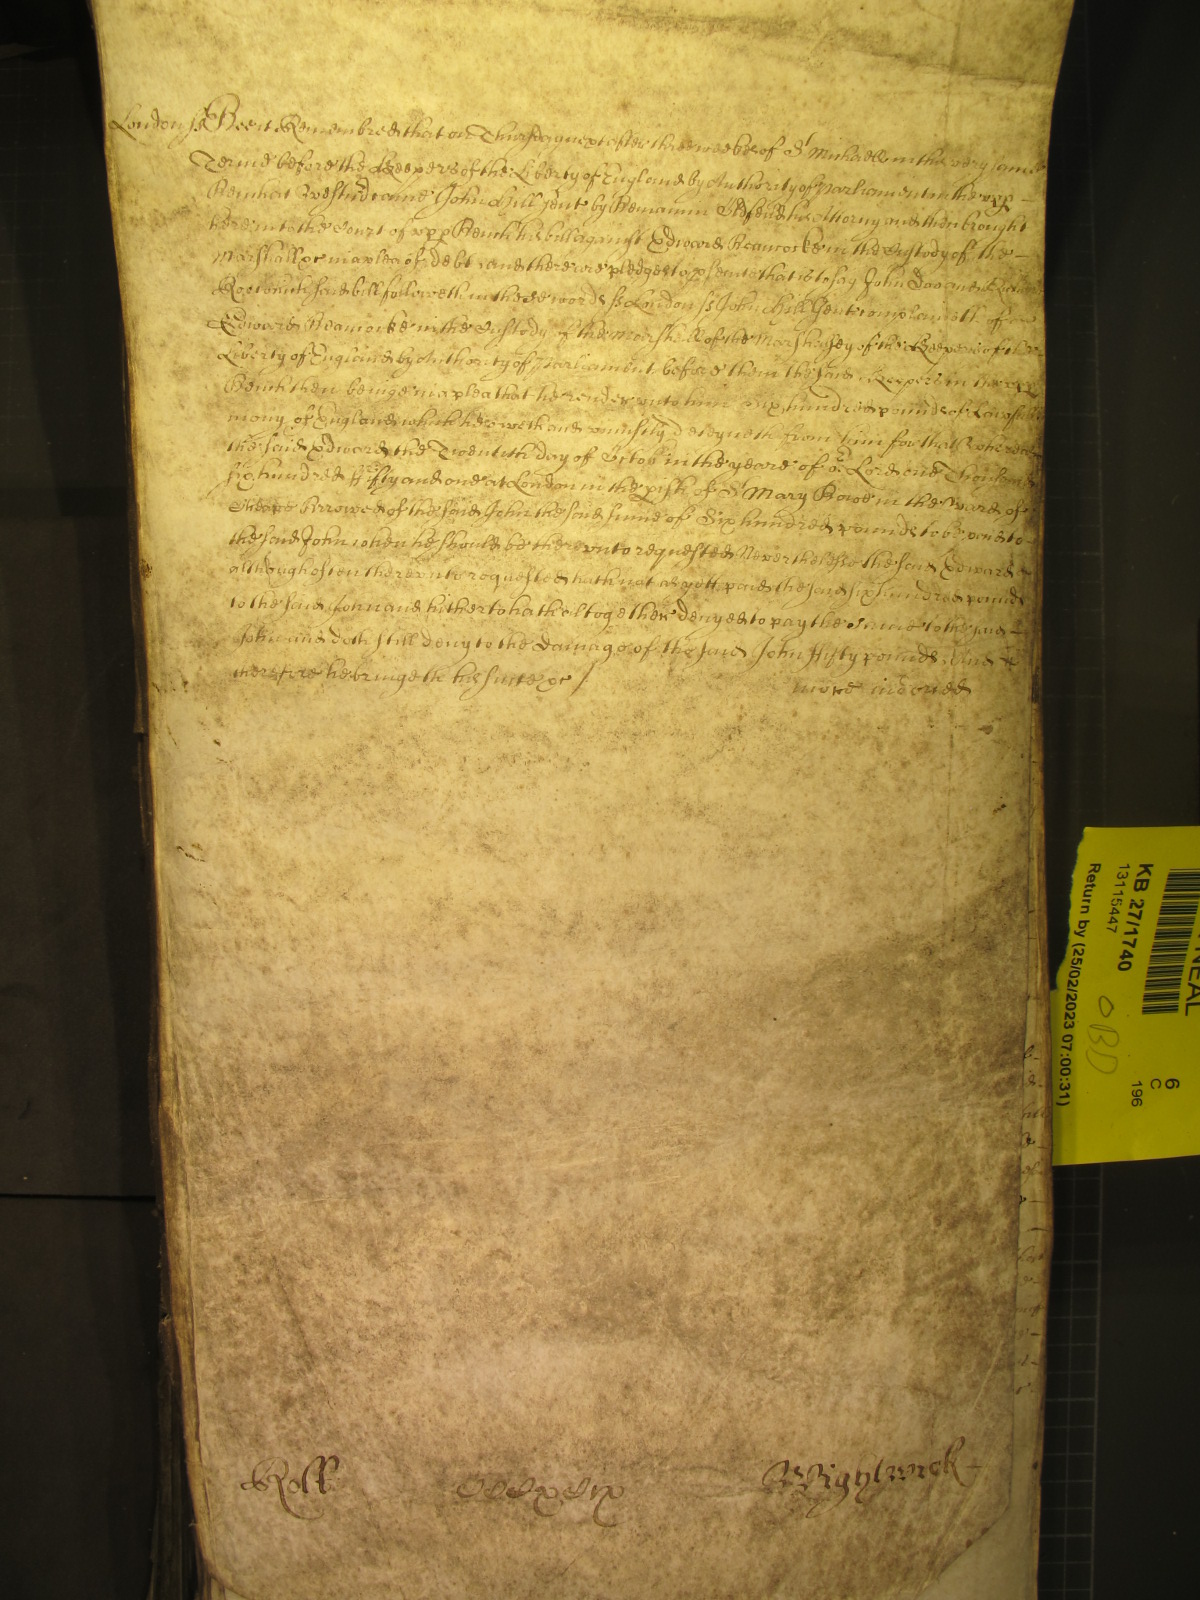 London ss Bee it Remembred that on Thursday next after three weekes of St Michaell in this very same
Terme before the Keepers of the Liberty of England by Authority of Parliament in the upp
Bench at Westm came John Hill gent by Beniamin his Attorny and then brought
here into the Court of upp Bench his bill against Edward Heancocke in the Custody of the
Marshall &c in a plea of debt and there are pledges to psecute that is to say John Doo and Richard
Roo which said bill followeth in these words ss London ss John Hill Gent complaineth of
Edward Heancocke in the Custody of the Marshall of the Marshalsey of the Keepers of the
Liberty of England by Authority of Parliament before them the said Keepers in the upp
Bench then beinge in a plea that he render unto him six hundred pounds of Lawfull
mony of England which he oweth and uniustly deteyneth from him for that whereas
the said Edward the Twentith day of Octob in the yeare of or Lord one Thousand
six hundred Fifty and one at London in the pish of St Mary Bowe in the Ward of
Cheape borrowed of the said John the said sume of Six hundred pounds to be paid to
the said John when he should be thereunto requested Neverthelesse the said Edward
although often thereunto requested hath not as yett paid the said six hundred pounds
to the said John and hitherto hath altogether denyed to pay the same to the said
John and doth still deny to the damage of the said John Fifty pounds And
therefore he bringeth his suite &c
Roll
Wightwick
KB 27/1740
13115447
Return by (25/02/2023 07:00:31)
OBD
6
C
196
NEAL